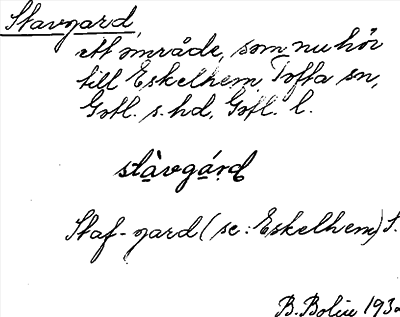 Stavgard,
ett område, som nu hör
till Eskelhem, Tofta sn,
Gotl. s. hd, Gotl. l.
stàvgárd
Staf-gard (se: Eskelhem) S.
B. Bolin 193